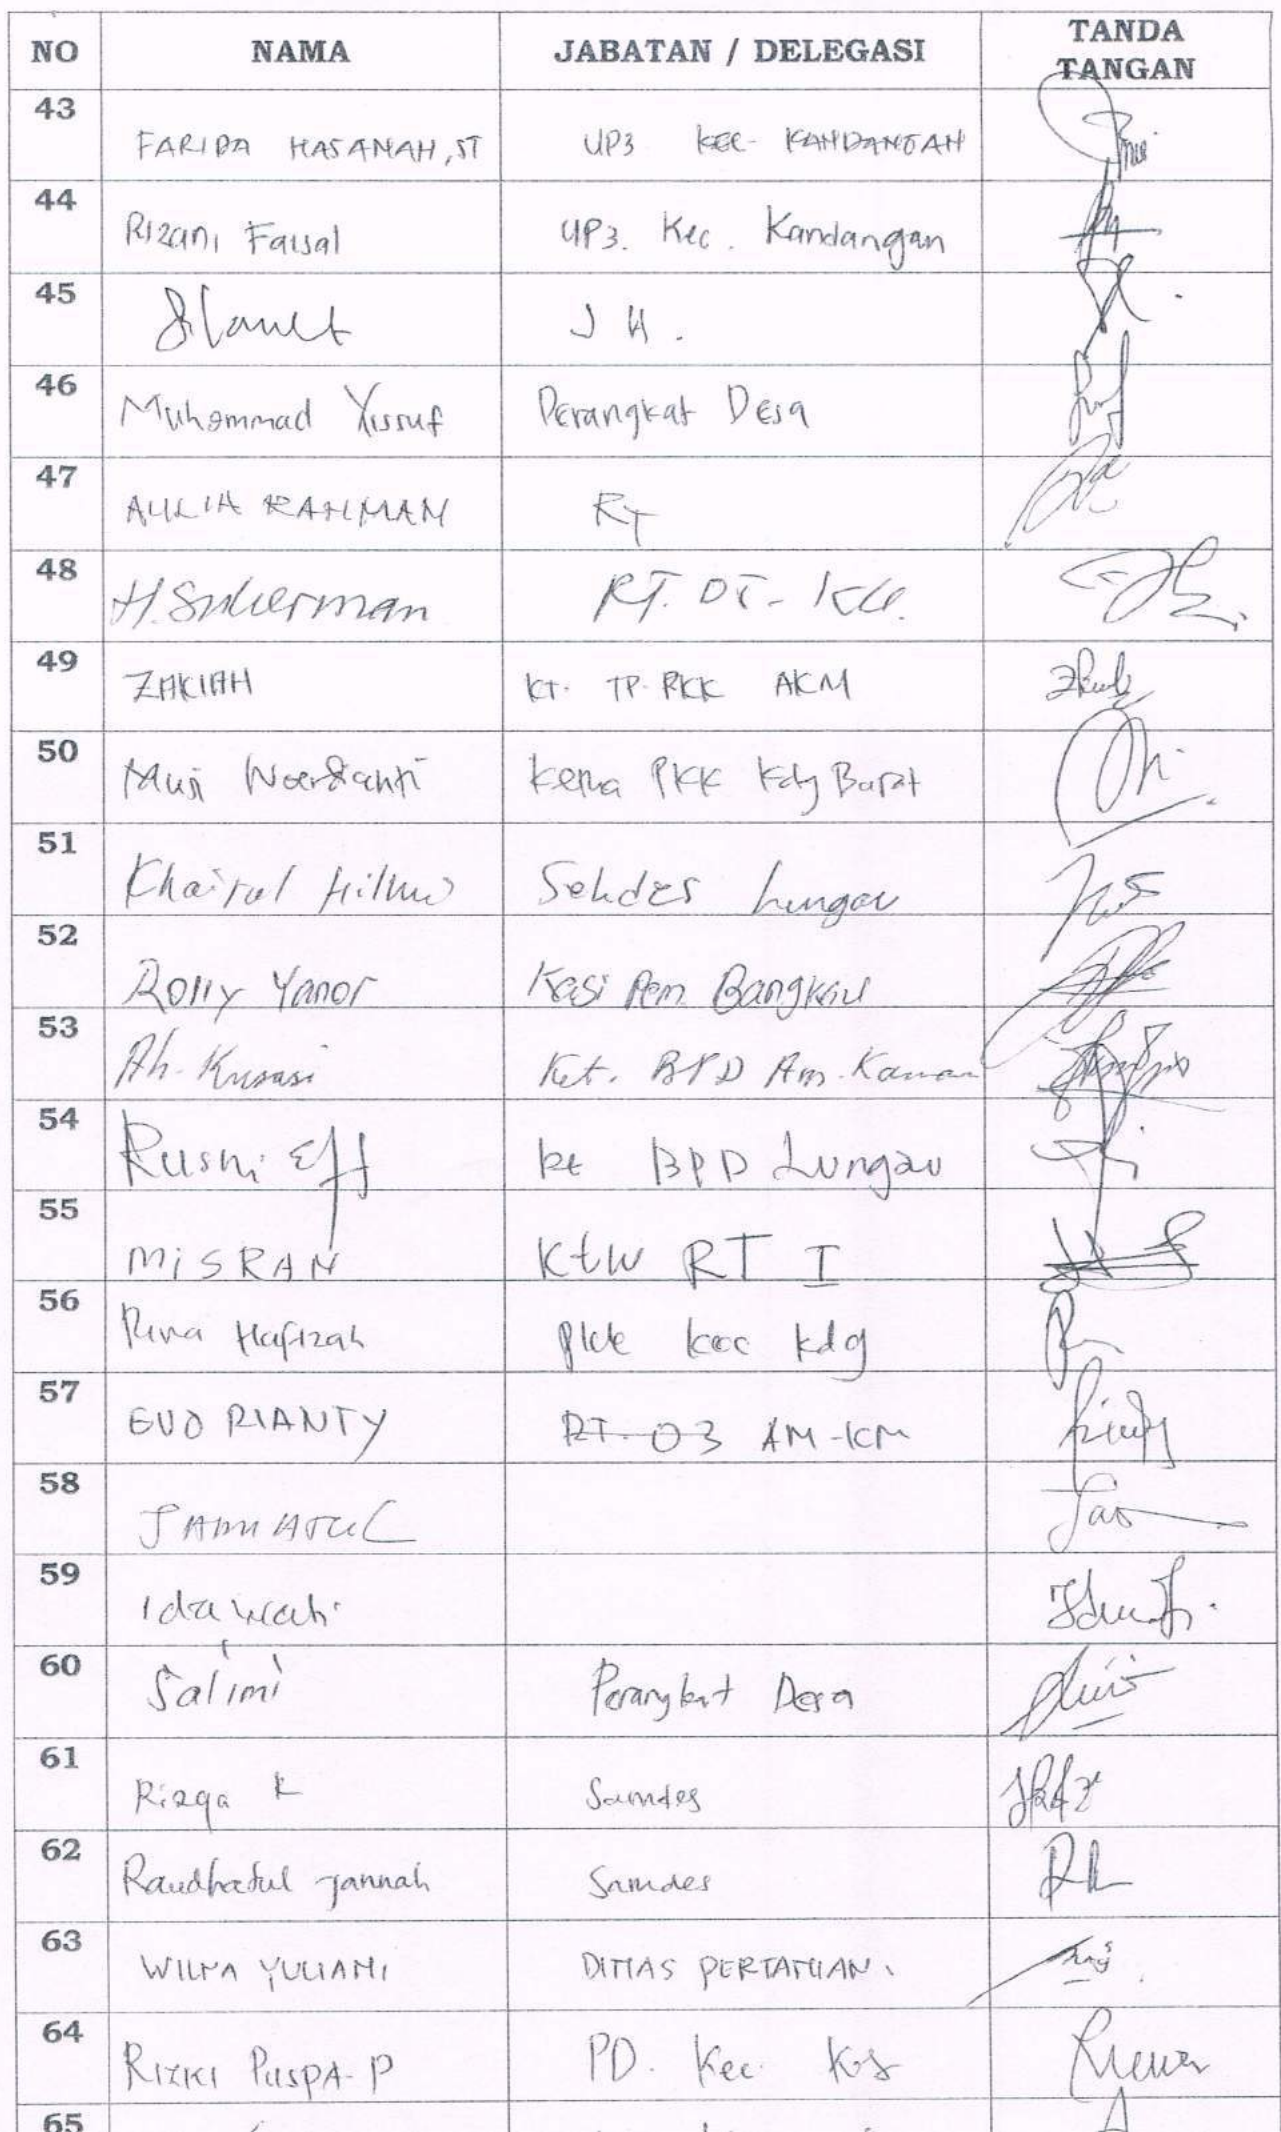 NO NAMA JABATAN / DELEGASI TANDA TANGAN
43 FARIDA HASANAH, ST UP3 KEC- KANDANGAN
44 Rizani Faisal UP3. Kec. Kandangan
45 Slamet J H.
46 Muhammad Yussuf Perangkat Desa
47 AULIA RAHMAN RT
48 H. Suherman RT.
49 ZAKIAH KT. TP. PKK AKM
50 PKK Kdg Barat
51 Khairul Hilmi Sekdes Lungau
52 Rolly Yanor Kasi Pem Bangkau
53 Ah. Kusasi Ket. BPD Am. Kanan
54 Rusni Eff kt BPD Lungau
55 MISRAN Ktw RT I
56 Rina Hafizah PKK kec kdg
57 EVO RIANTY RT. 03 AM-KM
58 JANNATUL
59 Idawati
60 Salimi Perangkat Desa
61 Rizqa K Samdes
62 Raudhatul Jannah Samdes
63 WILMA YULIANI DINAS PERTANIAN.
64 RIZKI PUSPA. P PD. Kec.
65